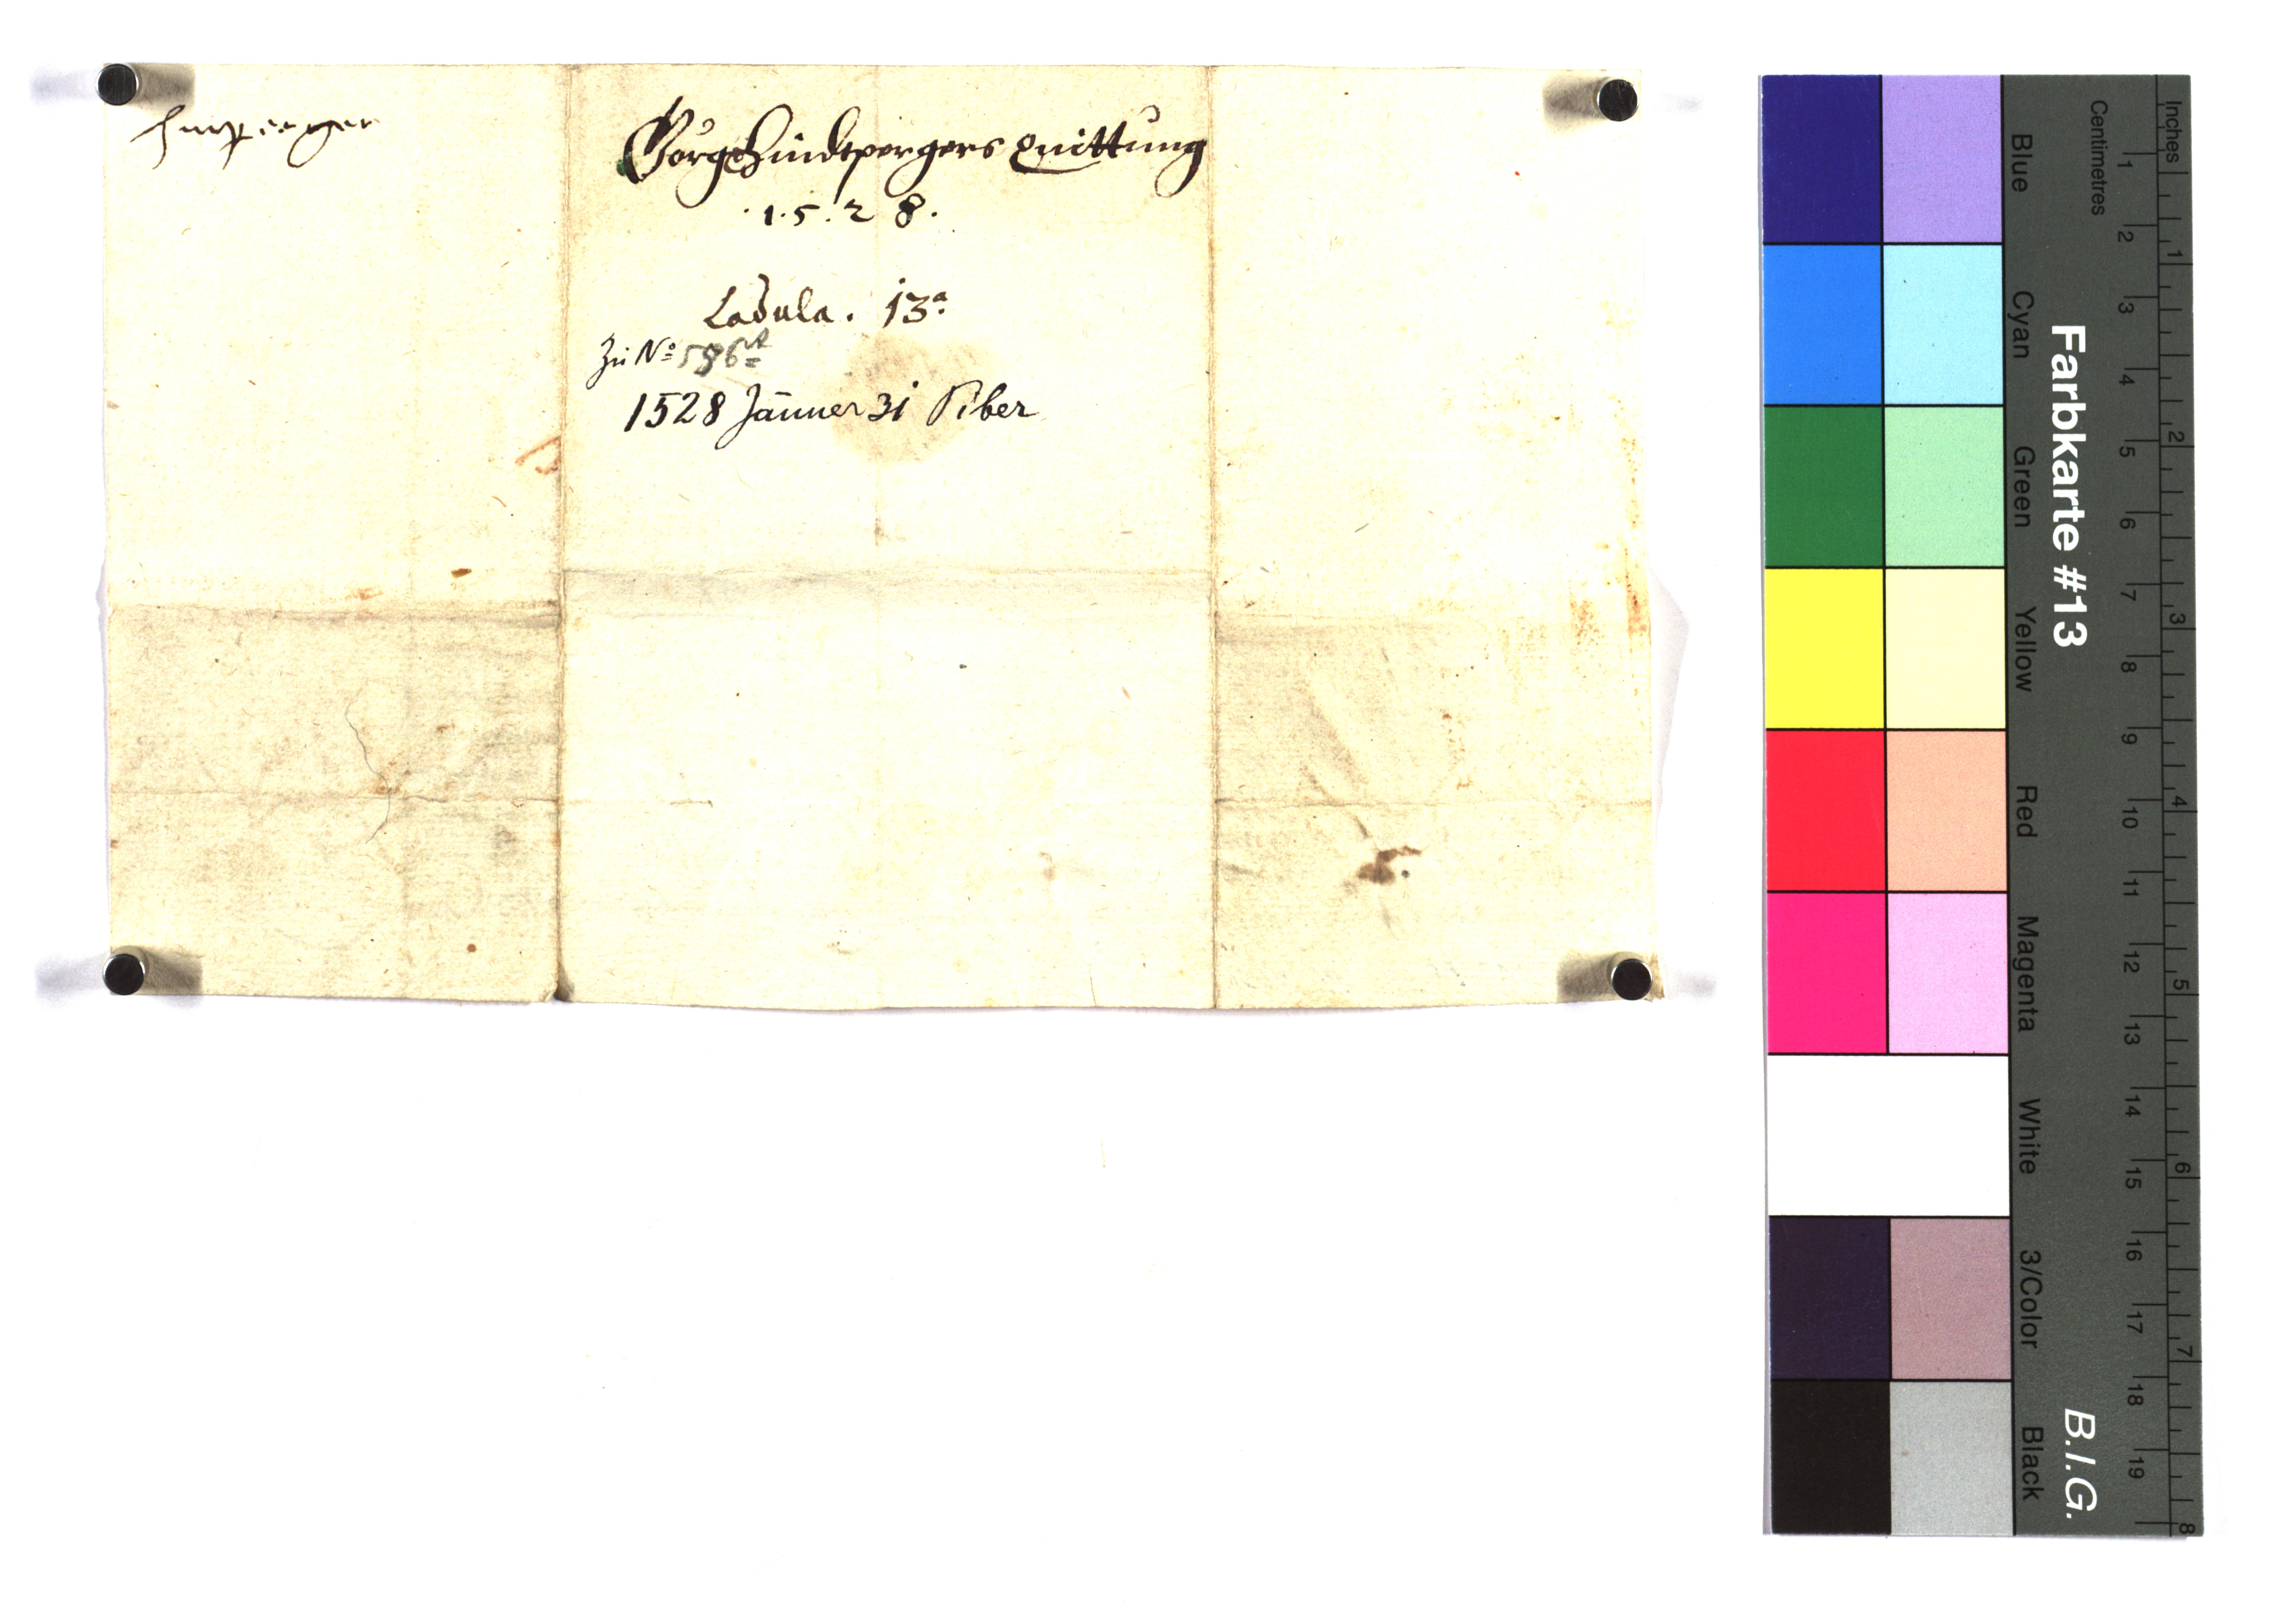 Görg Hindtpergers Quittung
.1.5.2 8.
Ladula. 13ª
Zu Nº 596
1528 Jänner 31 Piber
Inches
Centimetres
1 2 3 4 5 6 7 8 9 10 11 12 13 14 15 16 17 18 19
1 2 3 4 5 6 7 8
Farbkarte #13
B.I.G.
Blue
Cyan
Green
Yellow
Red
Magenta
White
3/Color
Black